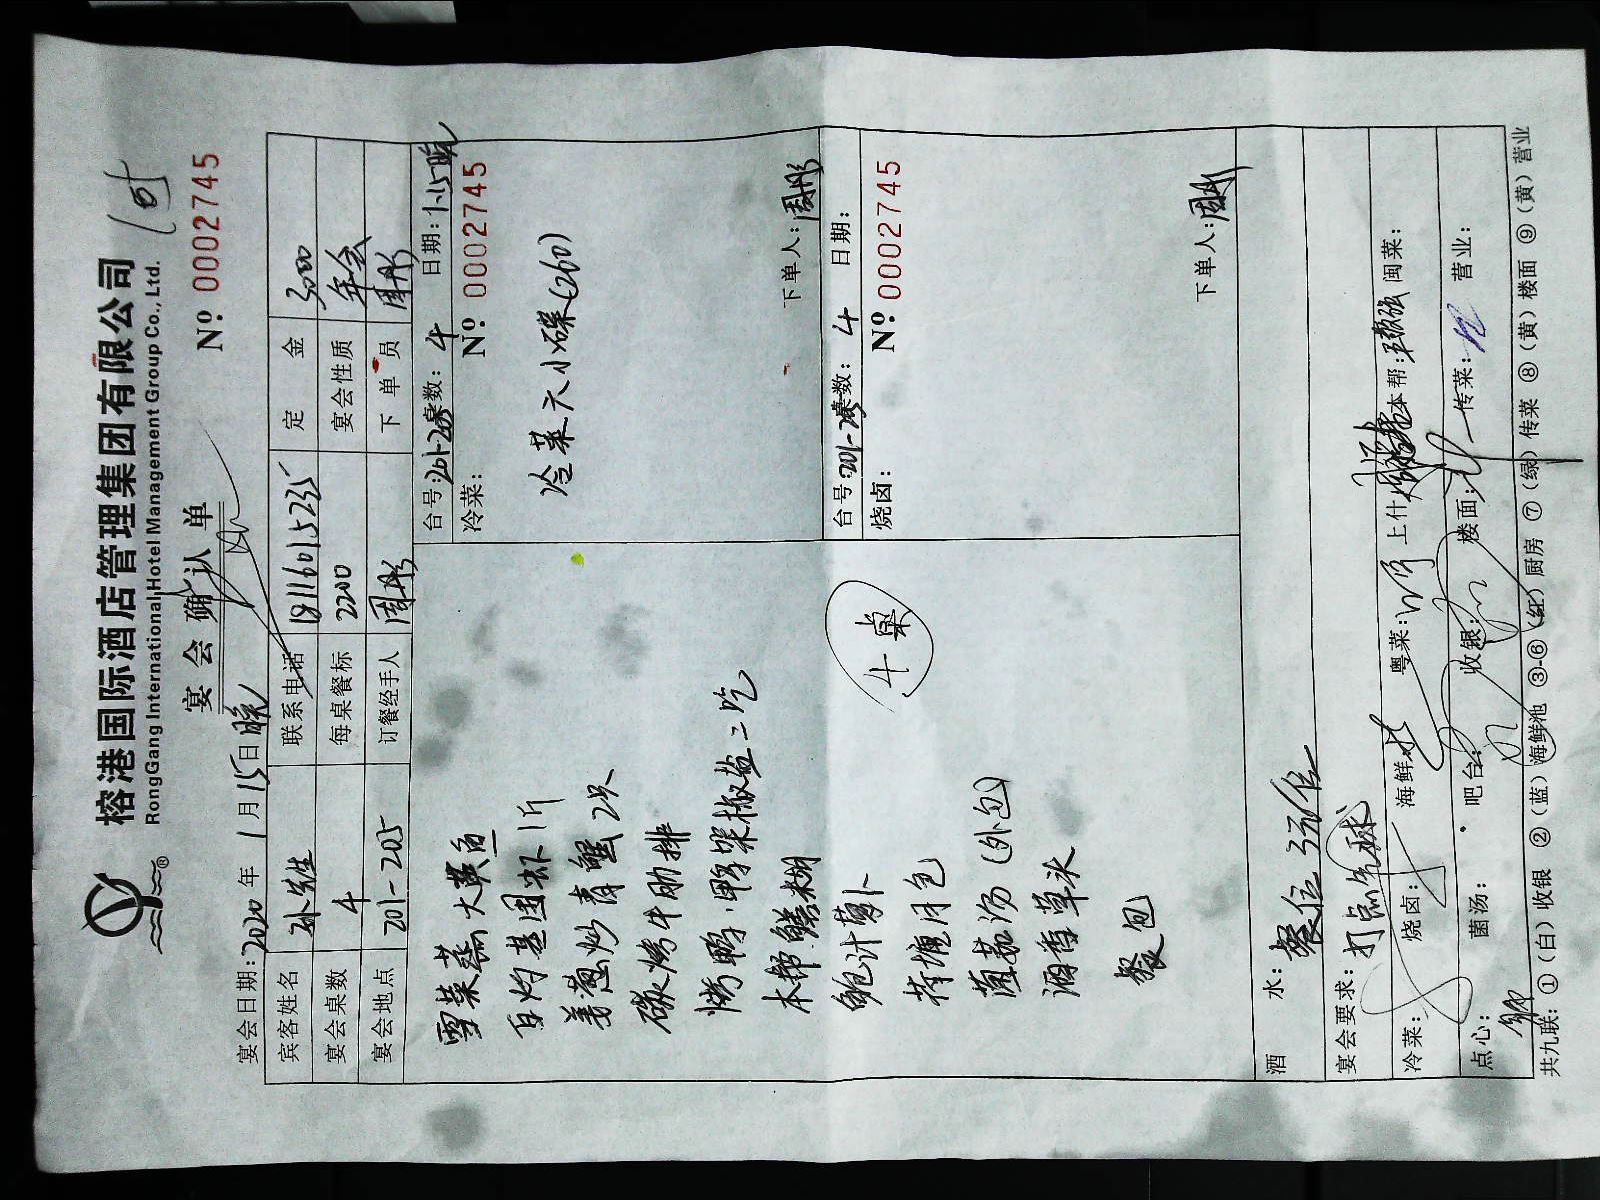 榕港国际酒店管理集团有限公司
RongGang International Hotel Management Group Co., Ltd.
®
宴会确认单
Nº: 0002745
宴会日期: 2020 年 1 月 15 日 晚
宾客姓名 孙先生 联系电话 18116015235 定金 3000
宴会桌数 4 每桌餐标 2200 宴会性质 年会
宴会地点 201-205 订餐经手人 周彤 下单员 周彤
雪菜蒸大黄鱼
白灼基围虾1斤
姜葱炒青蟹2只
碳烤牛肋排
烤鸭.鸭架椒盐二吃
本帮鳝糊
鲍汁萝卜
荷塘月色
菌菇汤(外包)
酒香草头
餐包
4桌
台号: 201-205 桌数: 4 日期: 1.15晚
冷菜: Nº: 0002745
冷菜六小碟(260)
下单人: 周彤
台号: 201-205 桌数: 4 日期:
烧卤: Nº: 0002745
下单人: 周彤
酒水: 餐位3元/位
宴会要求: 打点气球
冷菜: 烧卤: 海鲜: 粤菜: 上什: 本帮: 闽菜:
点心: 菌汤: 吧台: 收银: 楼面: 传菜: 营业:
共九联: ①(白)收银 ②(蓝)海鲜池 ③-⑥(红)厨房 ⑦(绿)传菜 ⑧(黄)楼面 ⑨(黄)营业